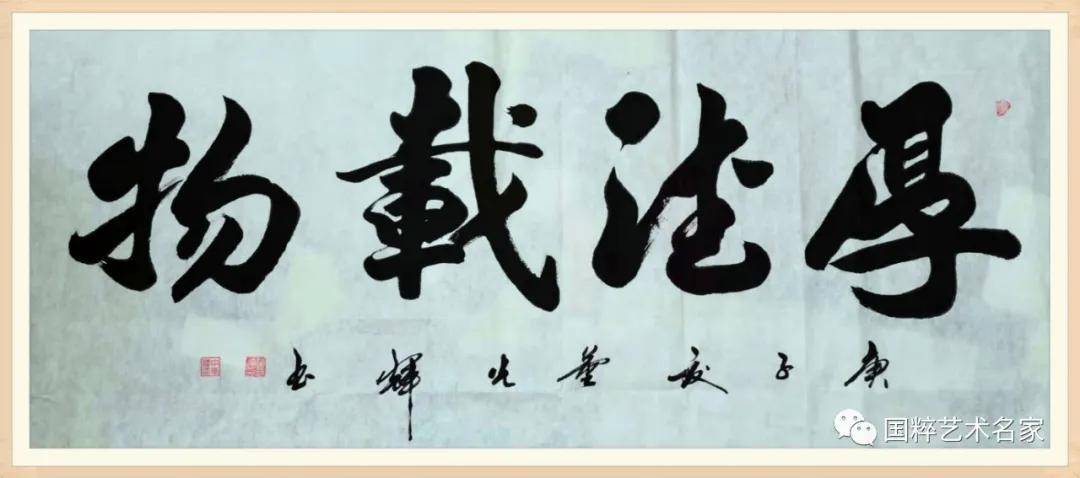 厚德載物
庚子夏董光輝书
国粹艺术名家